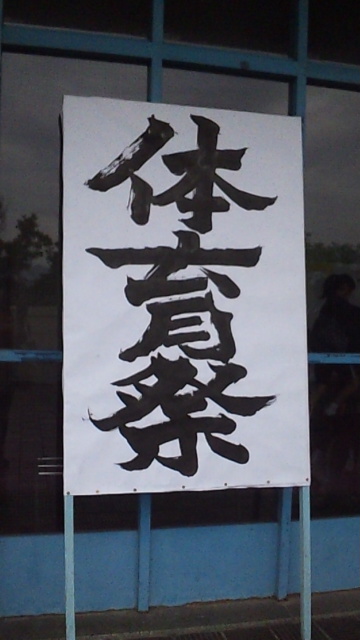 体育祭